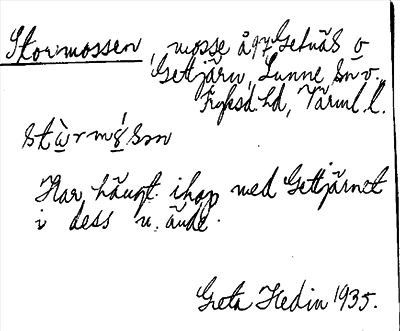 Stormossen, mosse å gr. Getnäs o
Gettjärn, Lunne sn v.
Fryksd. hd, Värml. l.
stὼrmǿsən
Har hängt ihop med Gettjärnet
i dess n. ände.
Greta Hedin 1935.